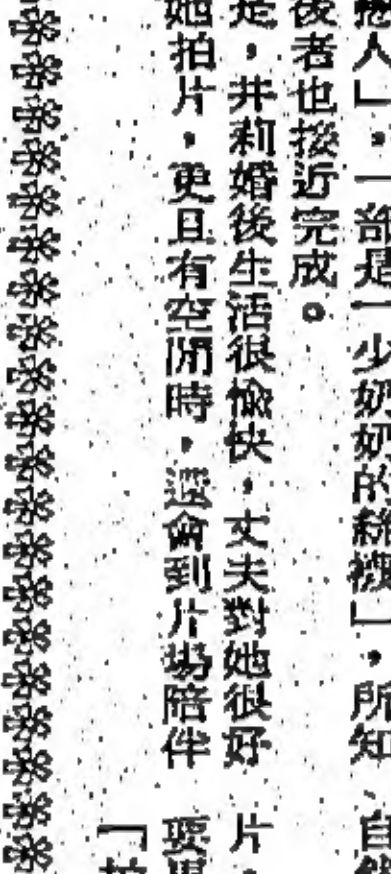 人」，一部是「少奶奶的絲襪」，所知
後者也接近完成。
是，井莉婚後生活很愉快，丈夫對她很好
她拍片，更且有空閒時，還會到片場陪伴
自
片，
要
「拍